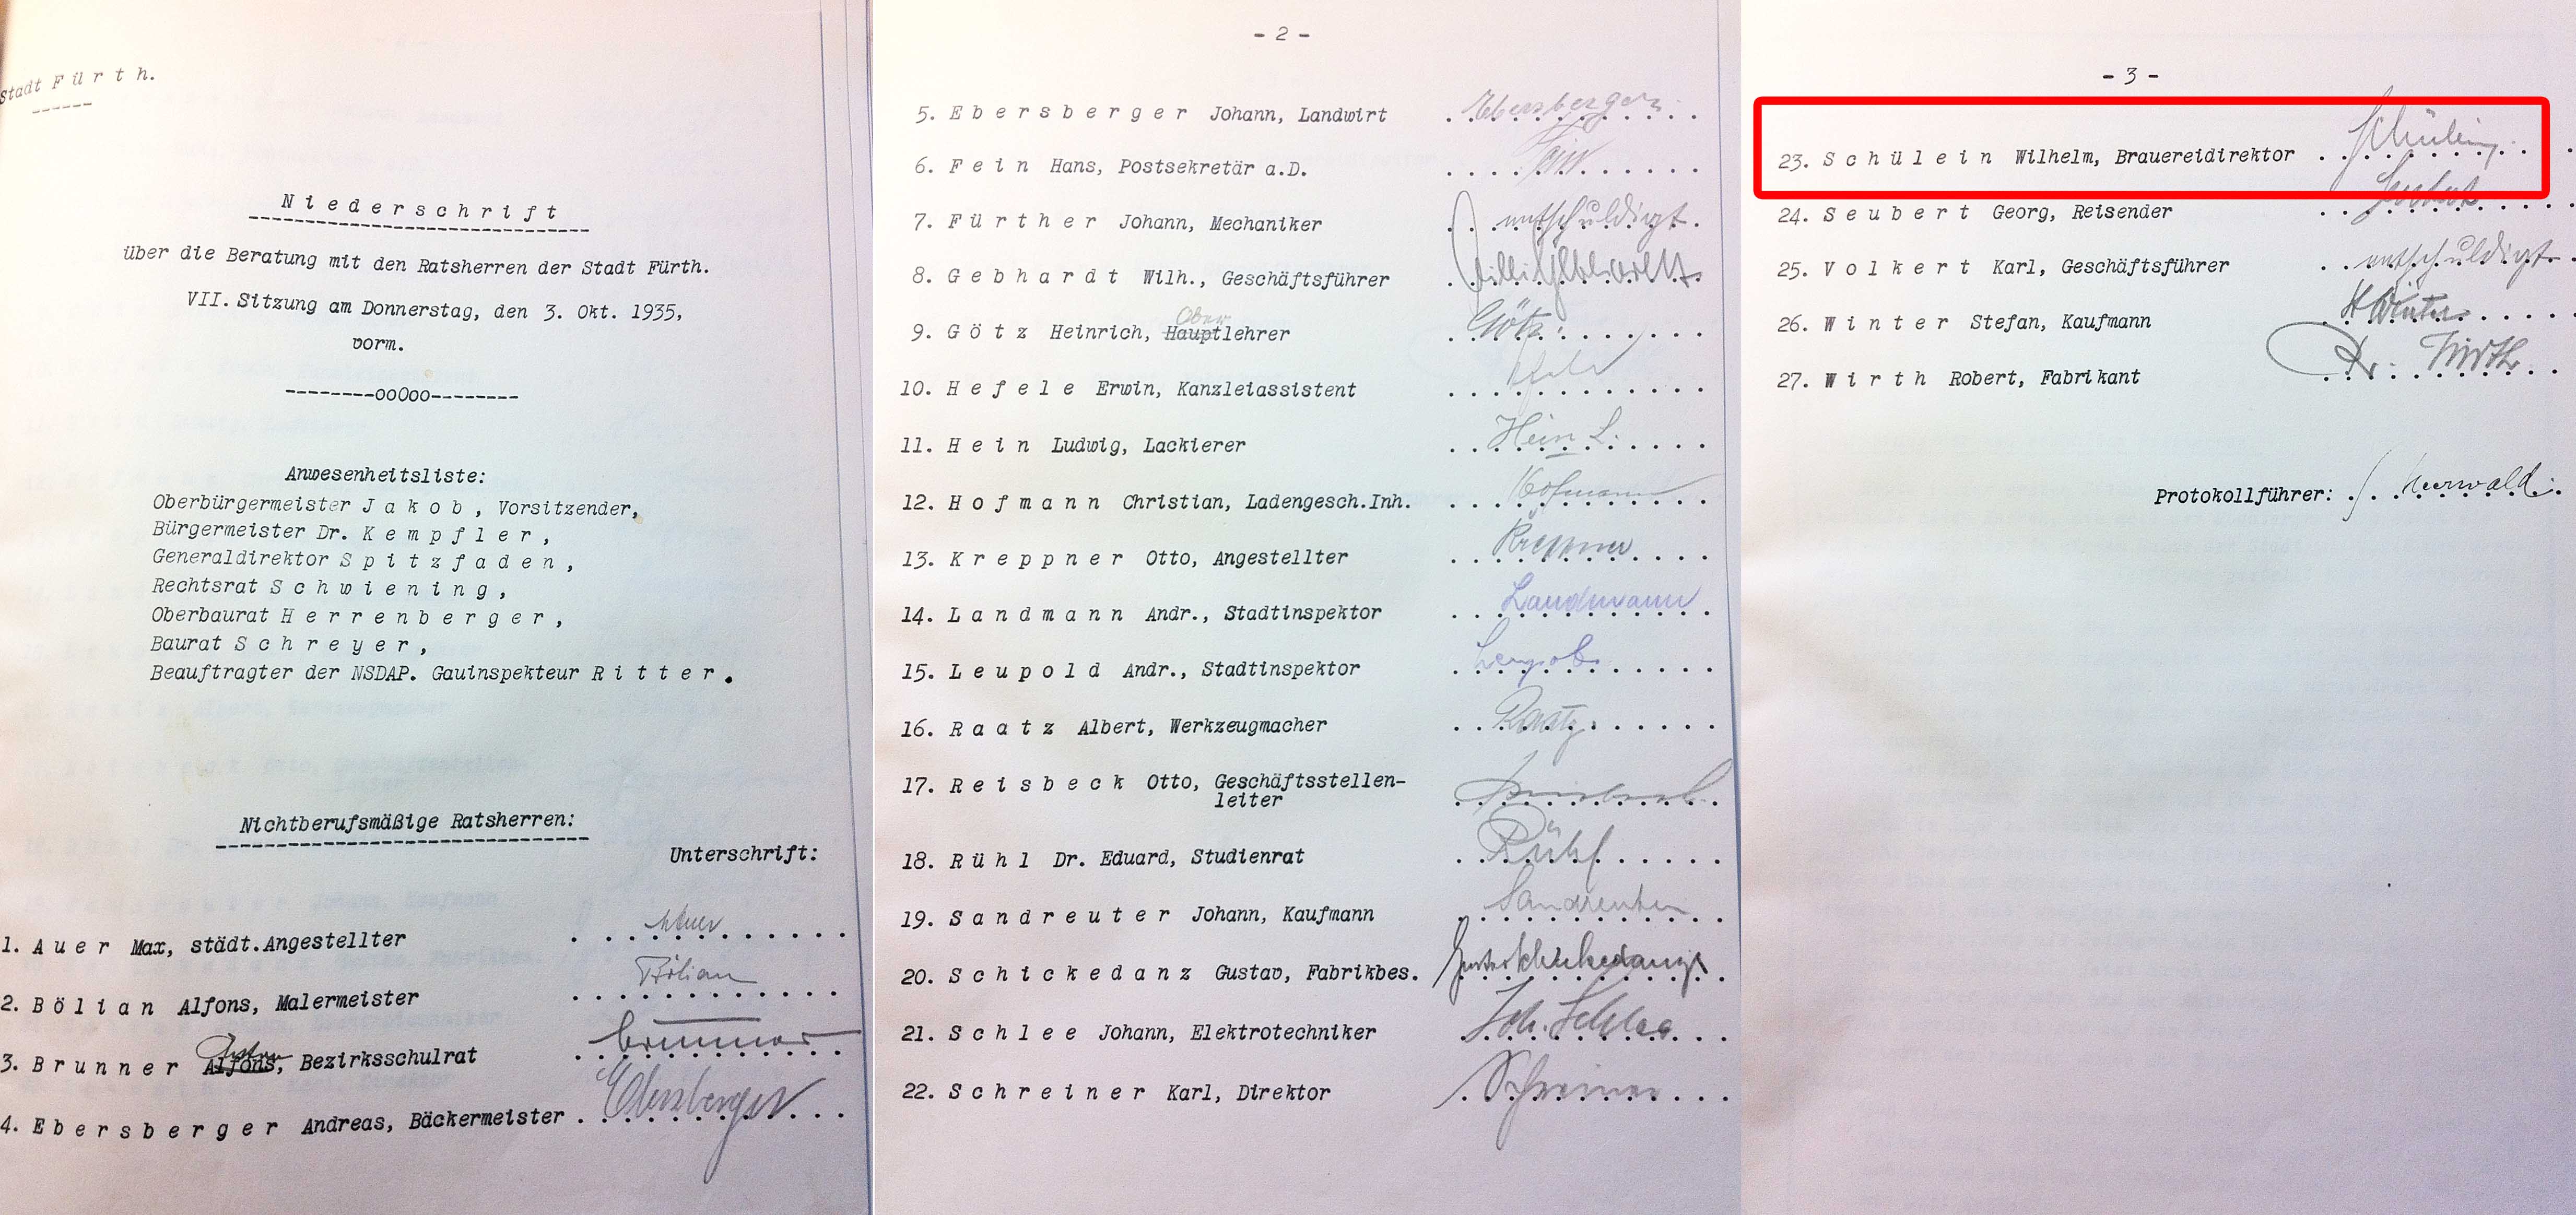 Stadt F ü r t h.
N i e d e r s c h r i f t
über die Beratung mit den Ratsherren der Stadt Fürth.
VII. Sitzung am Donnerstag, den 3. Okt. 1935,
vorm.
--------ooOoo--------
Anwesenheitsliste:
Oberbürgermeister J a k o b , Vorsitzender,
Bürgermeister Dr. K e m p f l e r ,
Generaldirektor S p i t z f a d e n ,
Rechtsrat S c h w i e n i n g ,
Oberbaurat H e r r e n b e r g e r ,
Baurat S c h r e y e r ,
Beauftragter der NSDAP. Gauinspekteur R i t t e r .
Nichtberufsmäßige Ratsherren:
Unterschrift:
1. A u e r Max, städt.Angestellter Auer
2. B ö l i a n Alfons, Malermeister Bölian
3. B r u n n e r Alfons, Bezirksschulrat Brunner
4. E b e r s b e r g e r Andreas, Bäckermeister Ebersberger
- 2 -
5. E b e r s b e r g e r Johann, Landwirt Ebersberger
6. F e i n Hans, Postsekretär a.D. Fein
7. F ü r t h e r Johann, Mechaniker entschuldigt
8. G e b h a r d t Wilh., Geschäftsführer Willi Gebhardt
Ober
9. G ö t z Heinrich, Hauptlehrer Götz
10. H e f e l e Erwin, Kanzleiassistent
11. H e i n Ludwig, Lackierer Hein L.
12. H o f m a n n Christian, Ladengesch.Inh. Hofmann
13. K r e p p n e r Otto, Angestellter Kreppner
14. L a n d m a n n Andr., Stadtinspektor Landmann
15. L e u p o l d Andr., Stadtinspektor Leupold
16. R a a t z Albert, Werkzeugmacher Raatz
17. R e i s b e c k Otto, Geschäftsstellen-
leiter
18. R ü h l Dr. Eduard, Studienrat Rühl
19. S a n d r e u t e r Johann, Kaufmann Sandreuter
20. S c h i c k e d a n z Gustav, Fabrikbes. Gustav Schickedanz
21. S c h l e e Johann, Elektrotechniker Joh. Schlee
22. S c h r e i n e r Karl, Direktor Schreiner
- 3 -
23. S c h ü l e i n Wilhelm, Brauereidirektor Schülein
24. S e u b e r t Georg, Reisender Seubert
25. V o l k e r t Karl, Geschäftsführer entschuldigt
26. W i n t e r Stefan, Kaufmann St Winter
27. W i r t h Robert, Fabrikant Dr. Wirth
Protokollführer: Meerwald